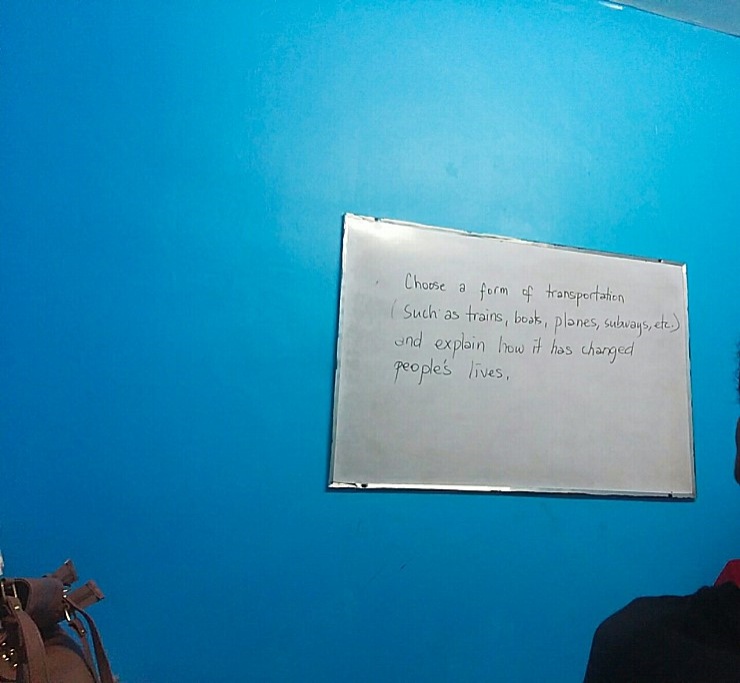 Choose a form of transportation
(Such as trains, boats, planes, subways, etc.)
and explain how it has changed
people's lives.